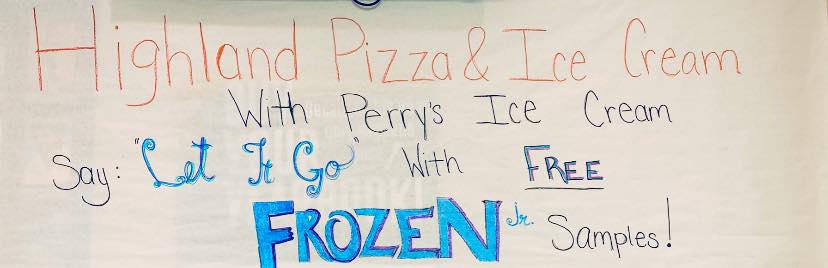 Highland Pizza & Ice Cream
With Perry's Ice Cream
Say: "Let It Go" With FREE
FROZEN jr. Samples!